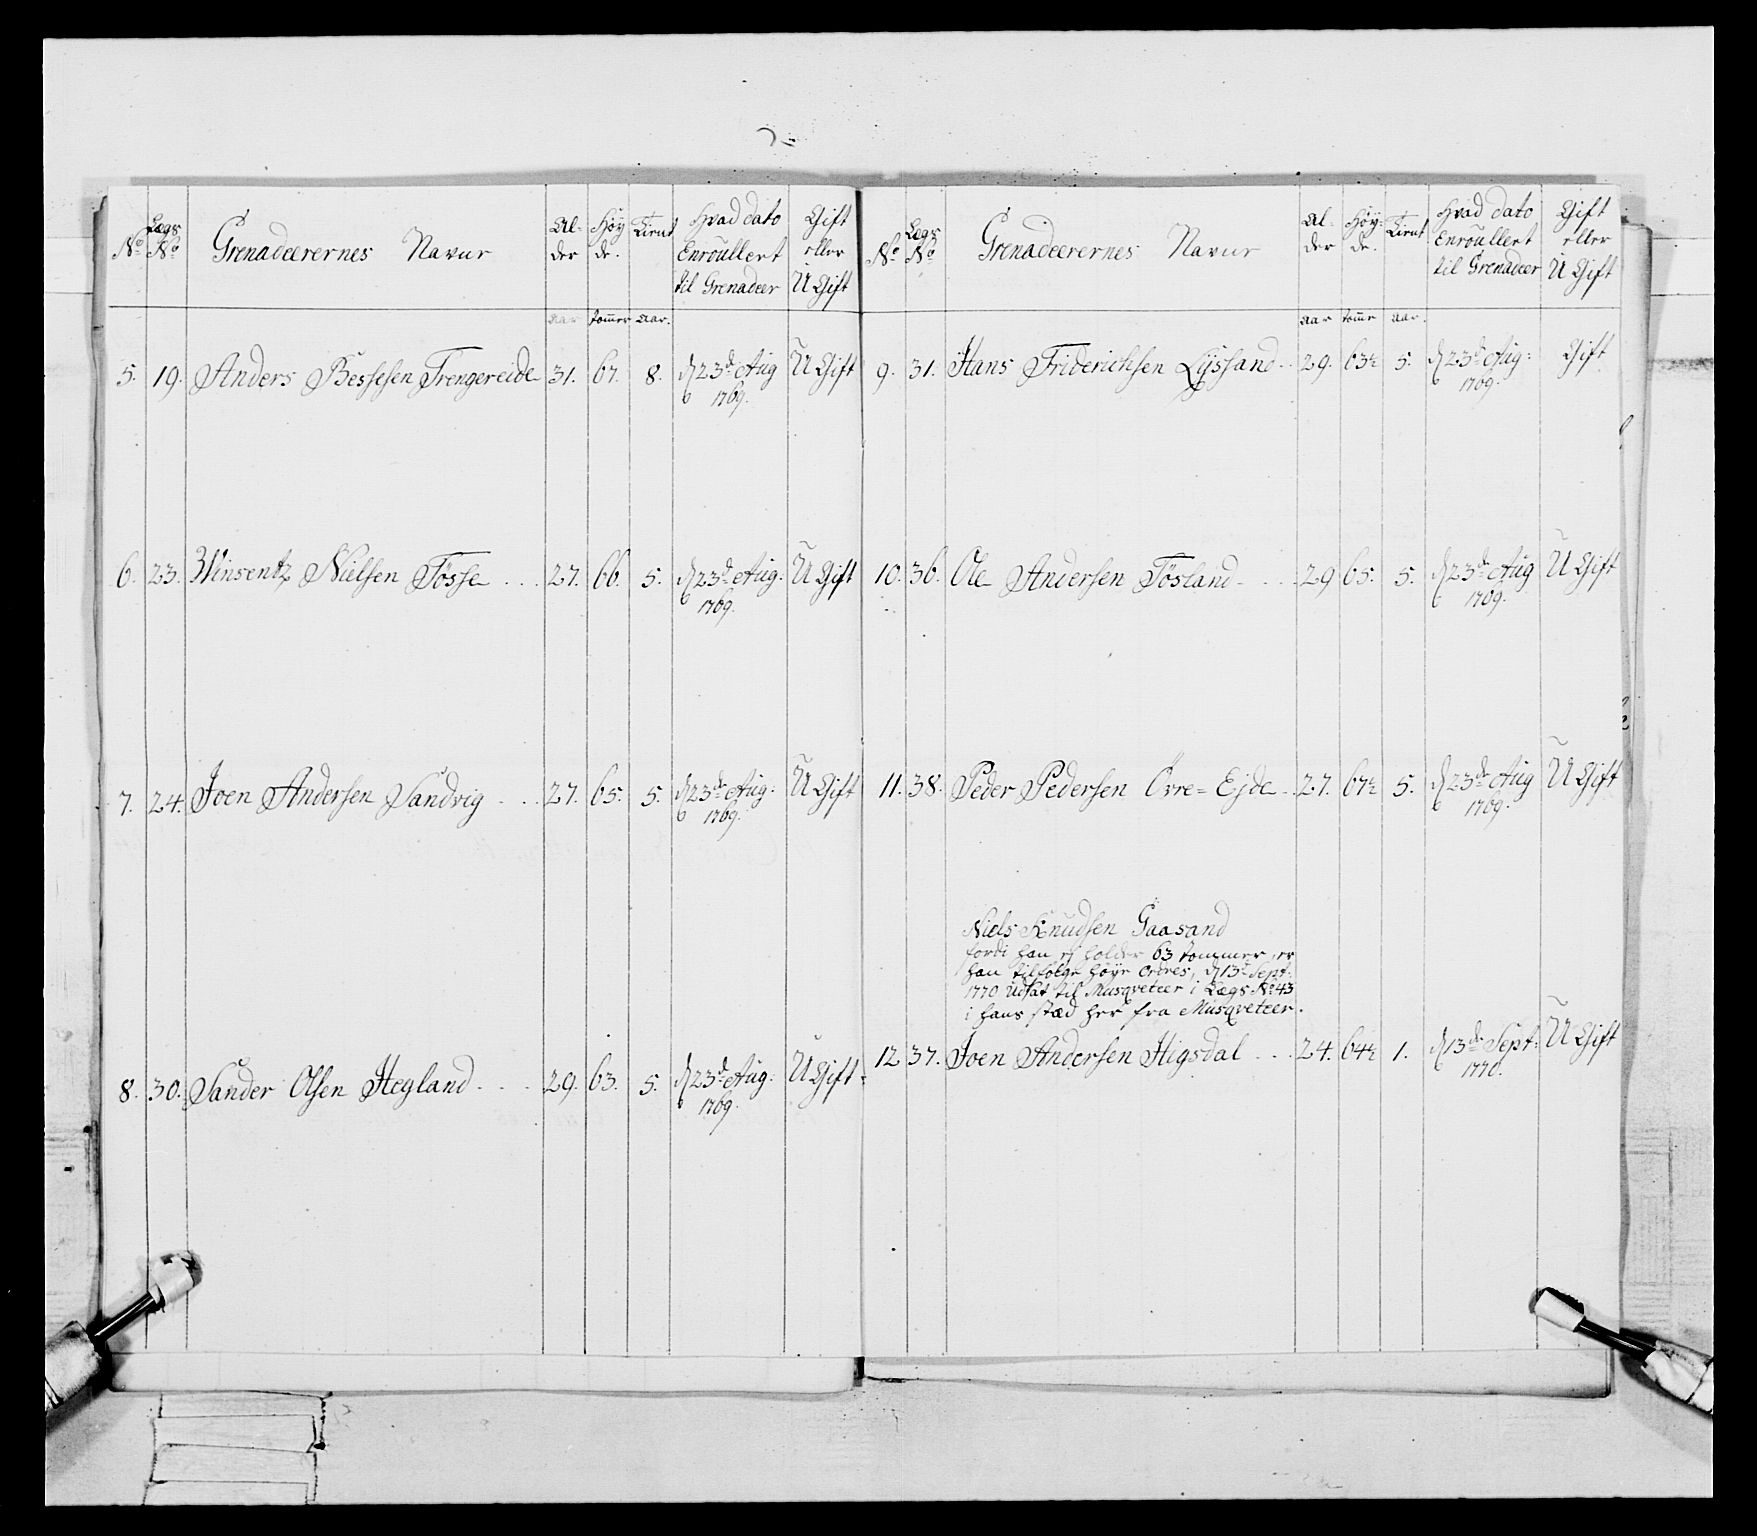 No Lægs No Grenadeerernes Navne Al-der Høy de. Tient Hvad dato Enroullert til Grenadeer Gift eller U Gift
Aar tommer Aar.
5. 19. Anders Bessesen Trengereide 31. 67. 8. d 23de Aug 1769. U Gift
6. 23. Winsentz Nielsen Tösse . . . 27. 66. 5. d 23de Aug. 1769. U Gift
7. 24. Joen Andersen Sandvig . . . 27. 65. 5. d 23de Aug: 1769. U Gift
8. 30. Sander Olsen Hegland . . . 29. 63. 5. d 23de Aug: 1769. U Gift
No Lægs No Grenadeerernes Navne Al-der Høy-de. Tient Hvad dato Enroullert til Grenadeer Gift eller U Gift
Aar tomme Aar.
9. 31. Hans Friderichsen Lÿssand . . 29. 63½ 5. d 23de Aug: 1769. Gift
10. 36. Ole Andersen Tösland . . . 29 65. 5. d 23de Aug 1769. U Gift
11. 38. Peder Pedersen Övre=Ejde . . 27. 67½ 5. d 23de Aug 1769. U Gift
Niels Knudsen Gaasand
fordi han ej holder 63 tommer, er
han tilfølge høye Ordres, d 13de Sept:
1770 udsat til Musqveteer i Lægs No 43
i hans stæd her fra Musqveteer.
12 37. Joen Andersen Higsdal . . . 24. 64½ 1. d 13de Sept: 1770. U Gift